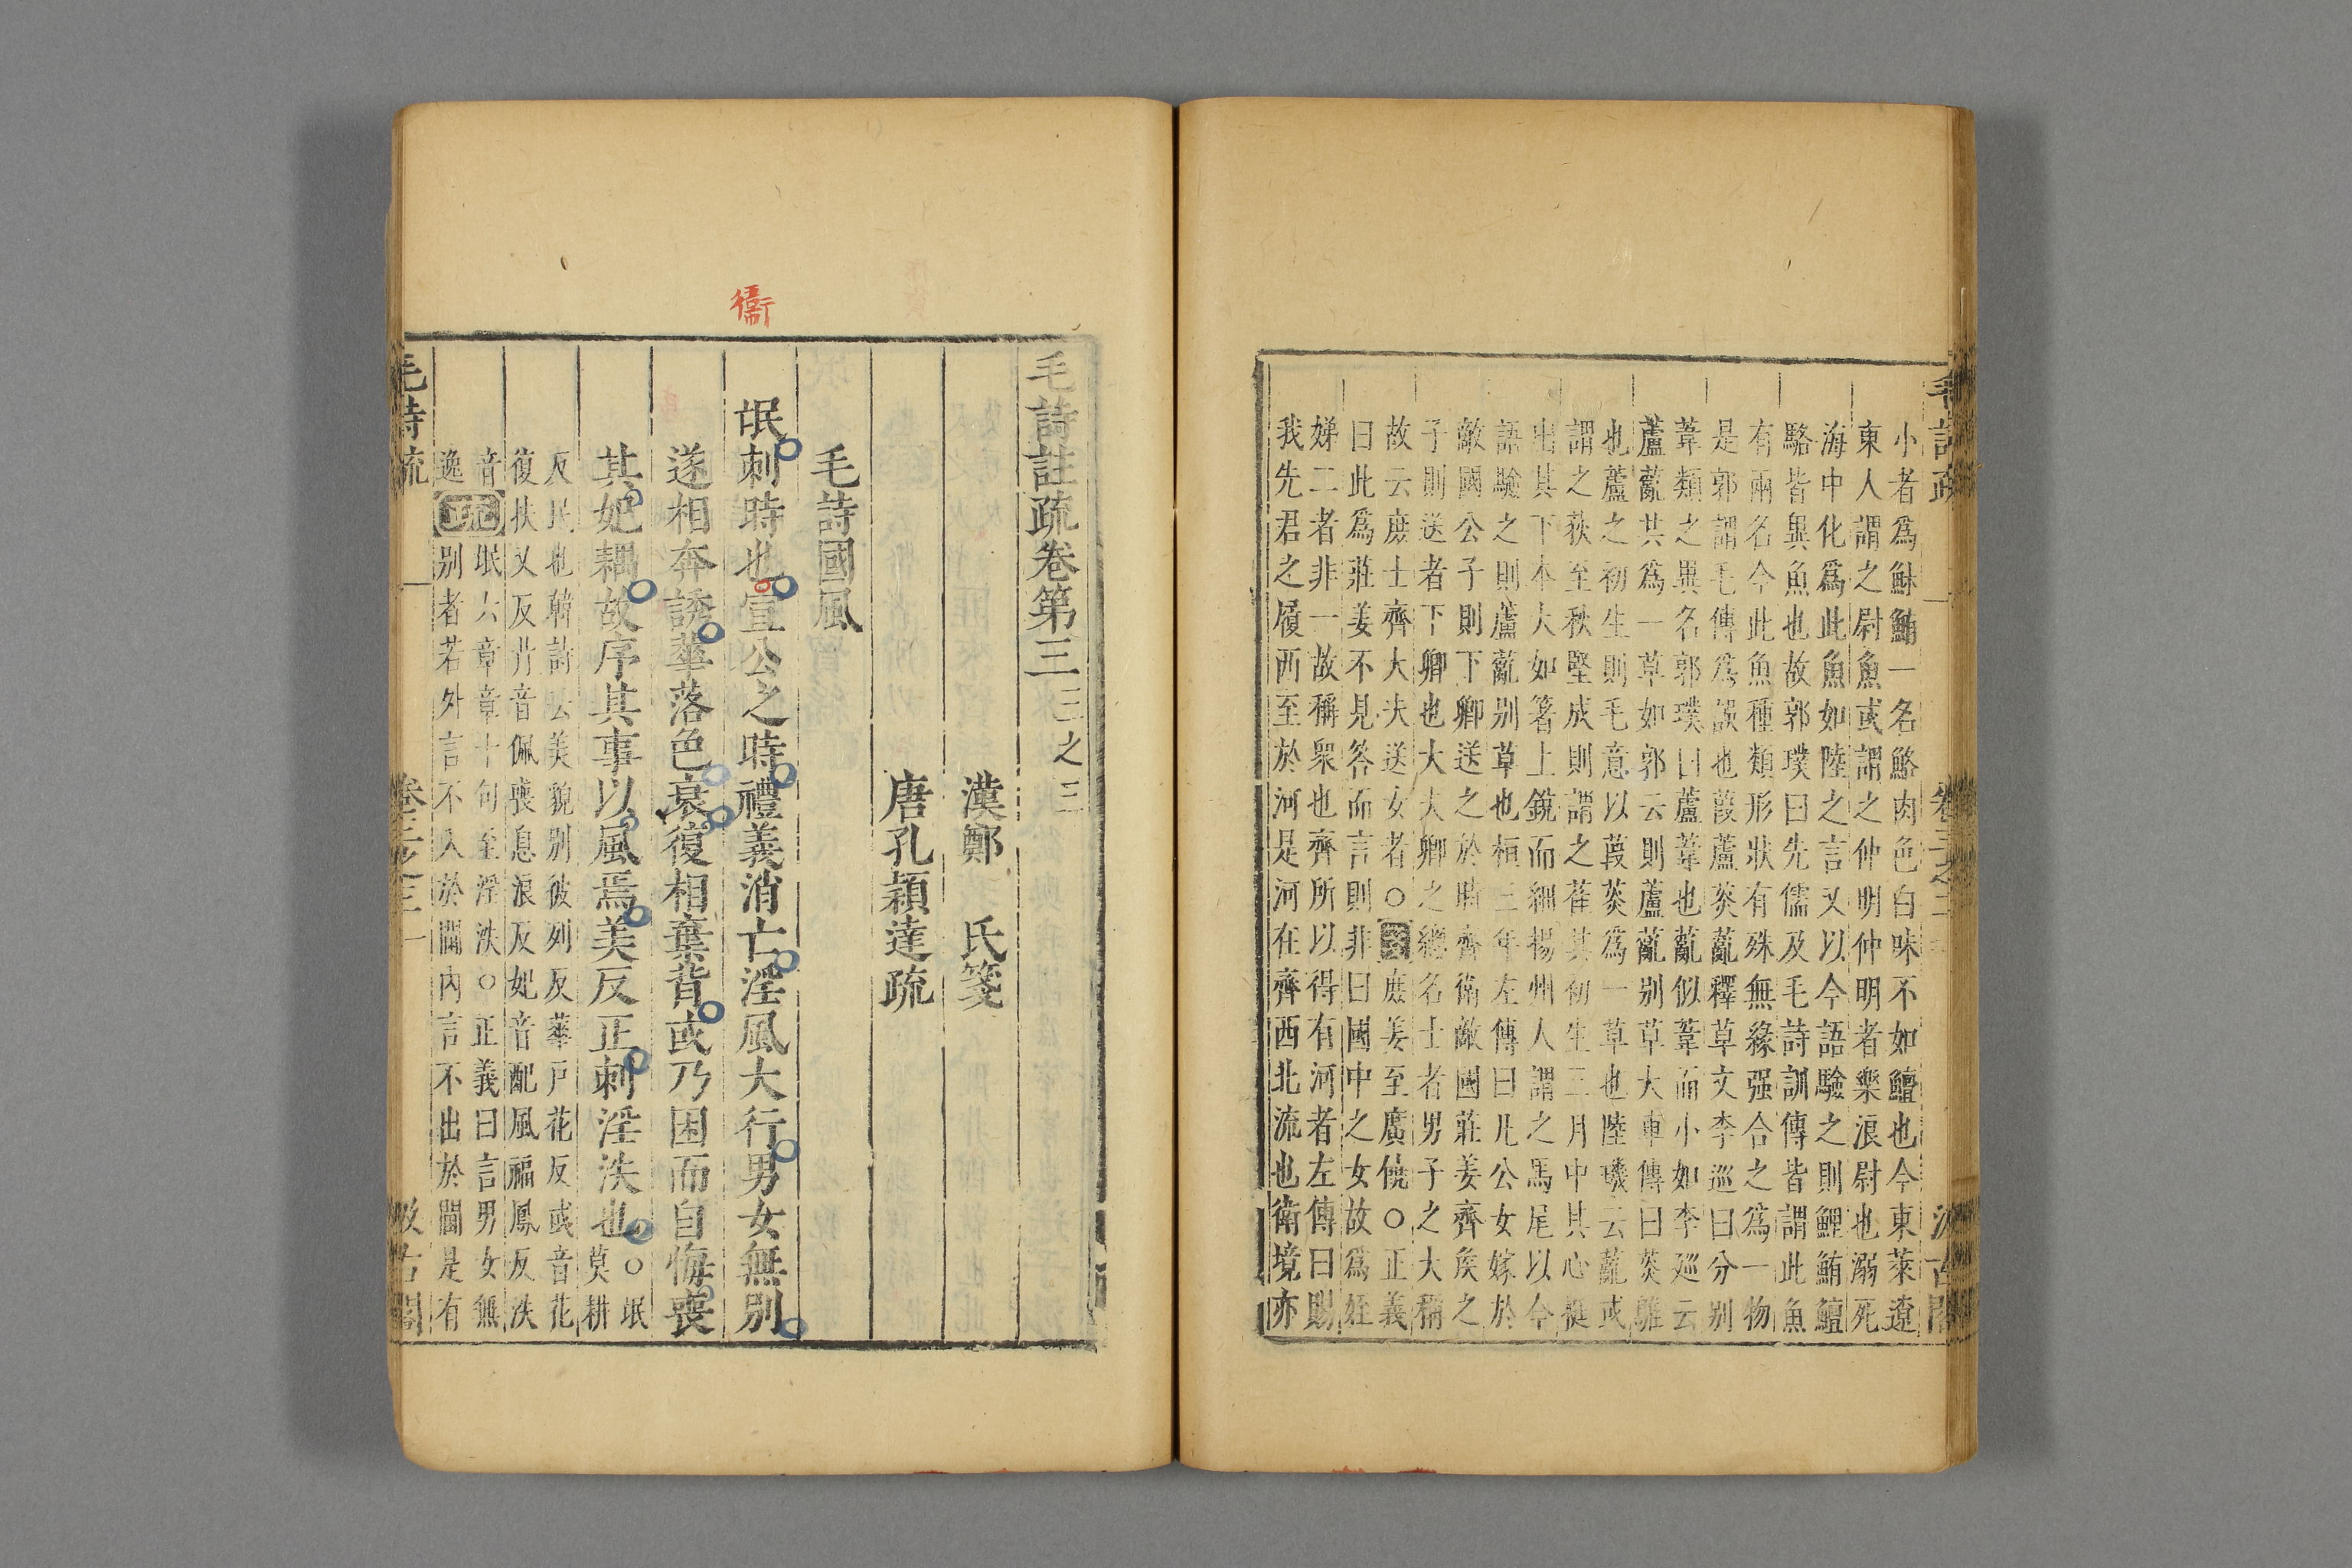 小者爲鮛鮪一名鮥肉色白味不如鱣也今東萊遼
東人謂之尉魚或謂之仲明仲明者樂浪尉也溺死
海中化爲此魚如陸之言又以今語驗之則鯉鮪鱣
鮥皆異魚也故郭璞曰先儒及毛詩訓傳皆謂此魚
有兩名今此魚種類形狀有殊無緣强合之爲一物
是郭謂毛傳爲誤也葭蘆菼薍釋草文李巡曰分别
葦類之異名郭璞曰蘆葦也薍似葦而小如李巡云
蘆薍共爲一草如郭云則蘆薍别草大車傳曰菼鵻
也蘆之初生則毛意以葭菼爲一草也陸璣云薍或
謂之荻至秋堅成則謂之萑其初生三月中其心挺
出其下本大如箸上銳而細楊州人謂之馬尾以今
語驗之則蘆薍别草也桓三年左傳曰凡公女嫁於
敵國公子則下卿送之於時齊衛敵國莊姜齊矦之
子則送者下卿也大大卿之總名士者男子之大稱
故云庶士齊大夫送女者○庶姜至廣僥○正義
曰此爲莊姜不見答而言則非曰國中之女故爲姪
娣二者非一故稱衆也齊所以得有河者左傳曰賜
我先君之履西至於河是河在齊西北流也衛境亦
毛詩註疏卷第三 三之三
漢鄭 氏箋
唐孔穎達疏
毛詩國風
衞
氓刺時也宣公之時禮義消亡淫風大行男女無别
遂相奔誘華落色衰復相棄背或乃困而自悔喪
其妃耦故序其事以風焉美反正刺淫泆也○氓
莫耕
反民也韓詩云美貌别彼列反華戸花反或音花
復扶又反背音佩喪息浪反妃音配風福鳳反泆
音
逸疏氓六章章十句至淫泆○正義曰言男女無
别者若外言不入於閫內言不出於閫是有
毛詩疏 卷三之三 一 汲古閣